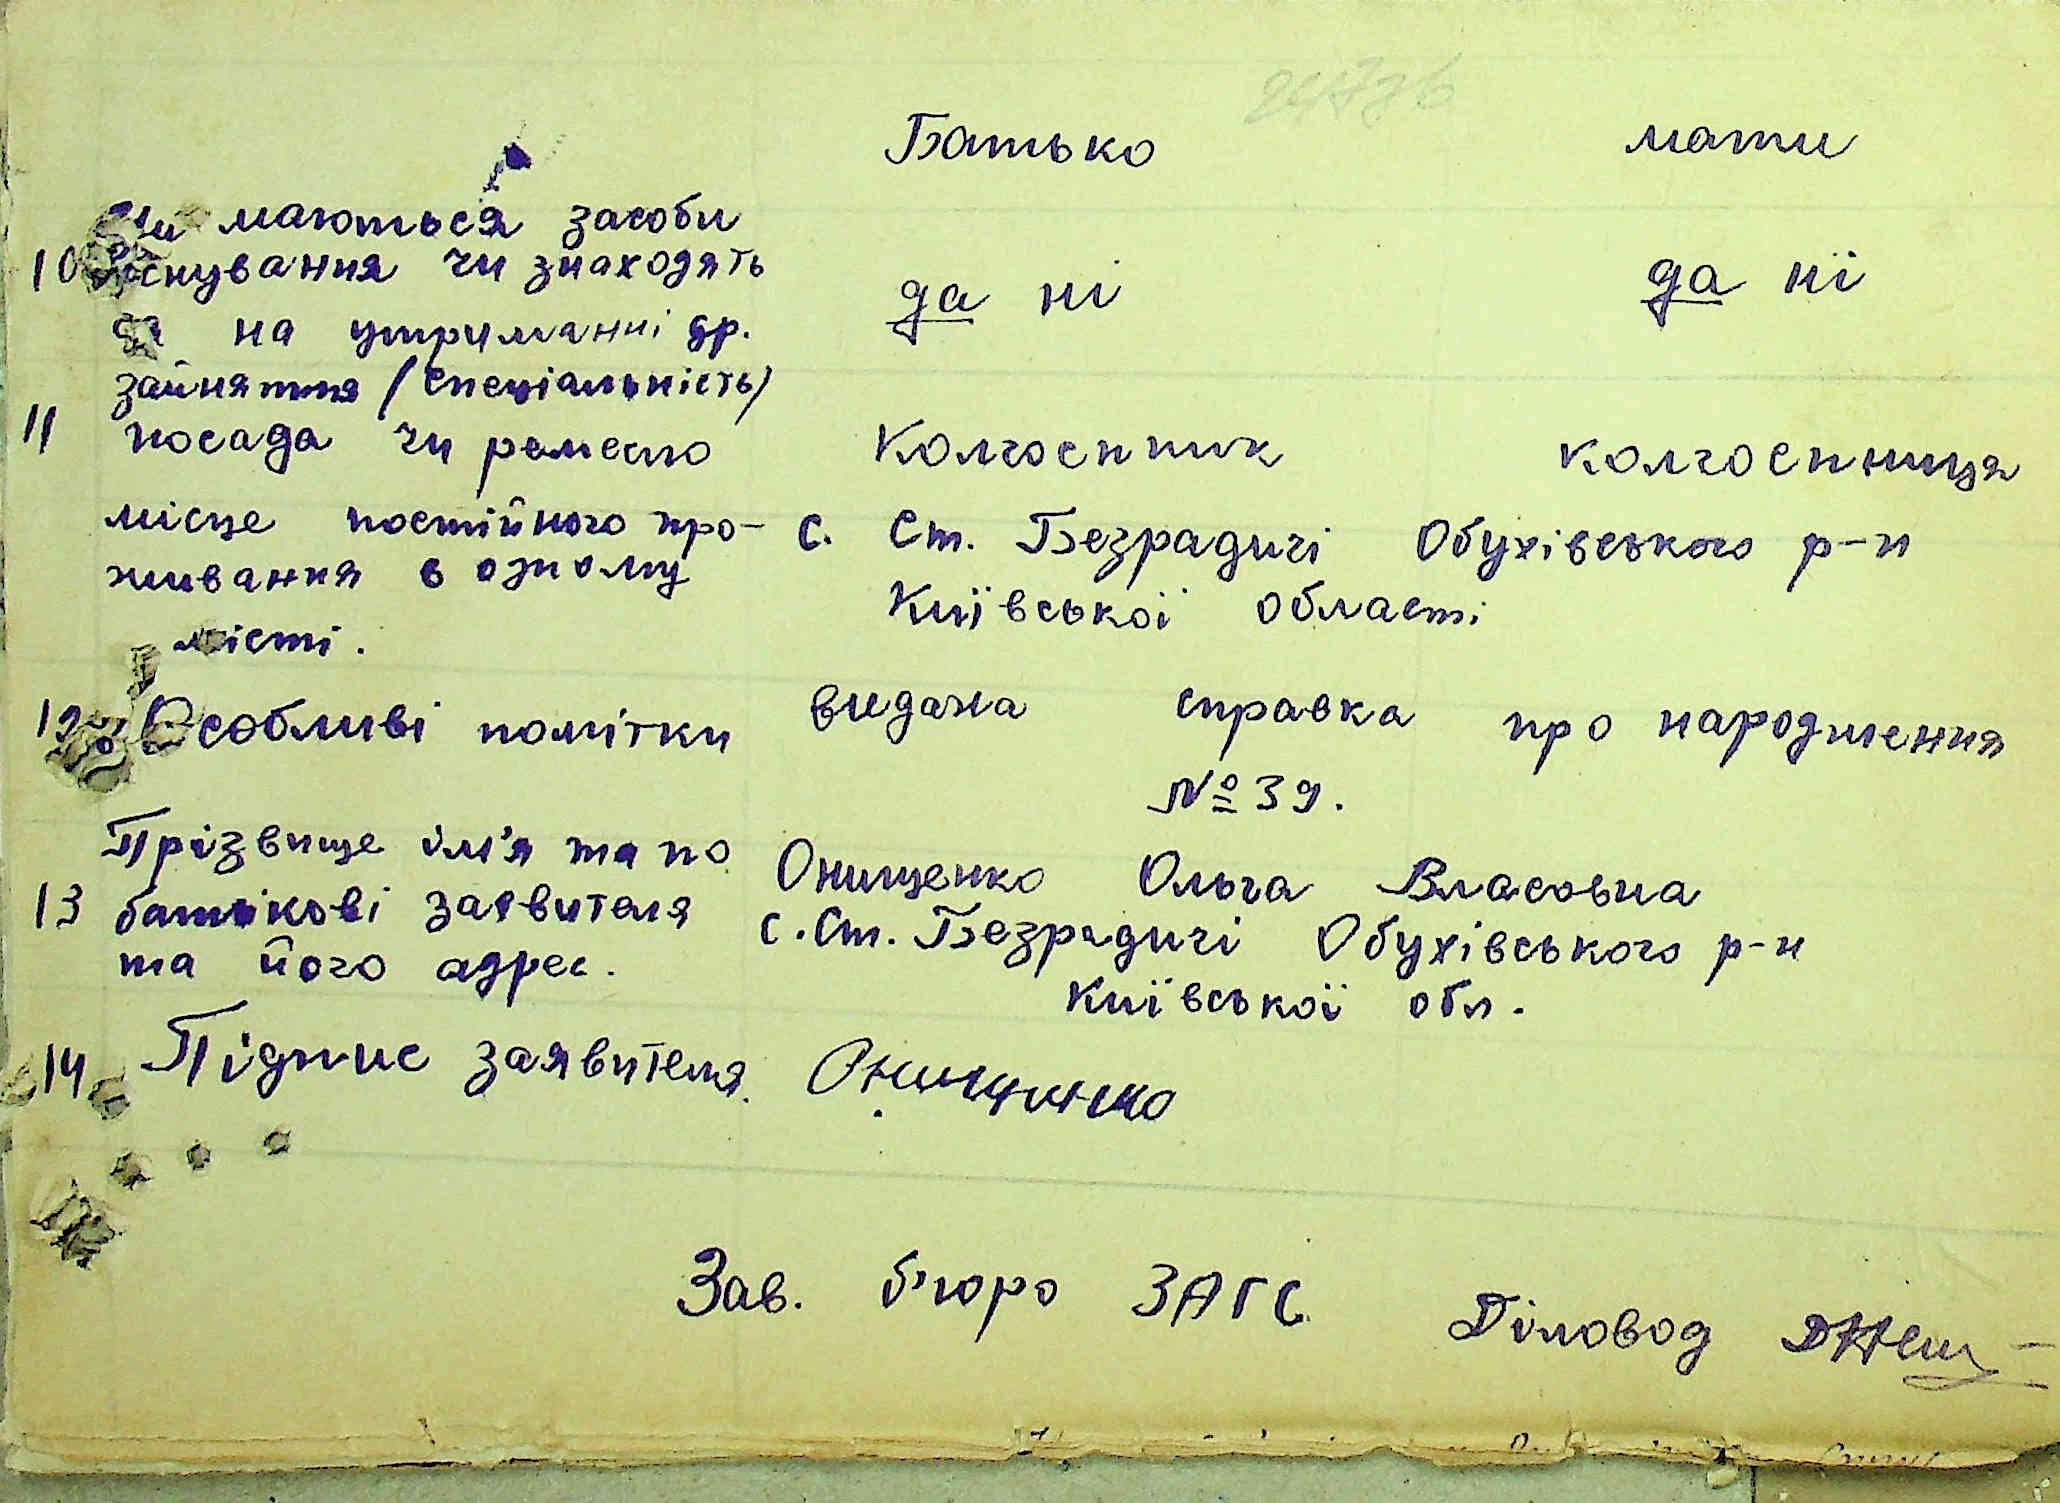 Батько мати
Чи маються засоби
10 існування чи знаходять да ні да ні
ся на утриманні др.
зайняття (спеціальність)
11 посада чи ремесло Колгоспник колгоспниця
місце постійного про- с. Ст. Безрадичі Обухівського р-н
живання в одному Київської області
місті.
12 Особливі помітки видана справка про народження
№ 39.
Прізвище ім'я та по Онищенко Ольга Власовна
13 батькові заявителя с. Ст. Безрадичі Обухівського р-н
та його адрес. Київської обл.
14 Підпис заявителя. Онищинко
Зав. б'юро ЗАГС Діловод